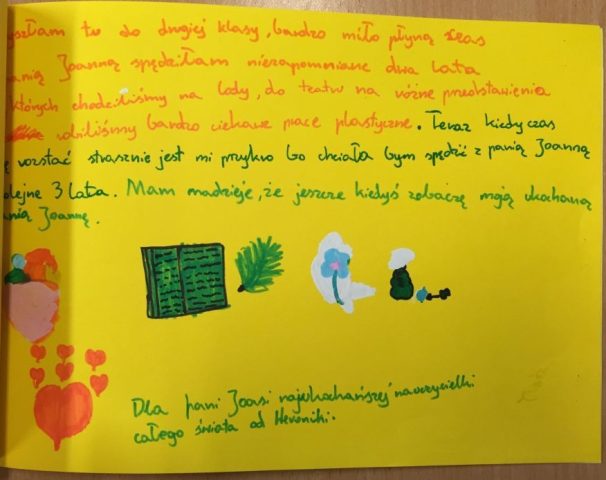 szłam tu do drugiej klasy, bardzo miło płyną czas
anią Joanną spędziłam niezapomniane dwa lata
których chodziliśmy na lody, do teatru na różne przedstawienia
robiliśmy bardzo ciekawe prace plastyczne. Teraz kiedy czas
ę rozstać strasznie jest mi przykro bo chciała bym spędzić z panią Joanną
olejne 3 lata. Mam nadzieje, że jeszcze kiedyś zobaczę moją ukochaną
anią Joannę.
Dla pani Joasi najukochańszej nauczycielki
całego świata od Weroniki.